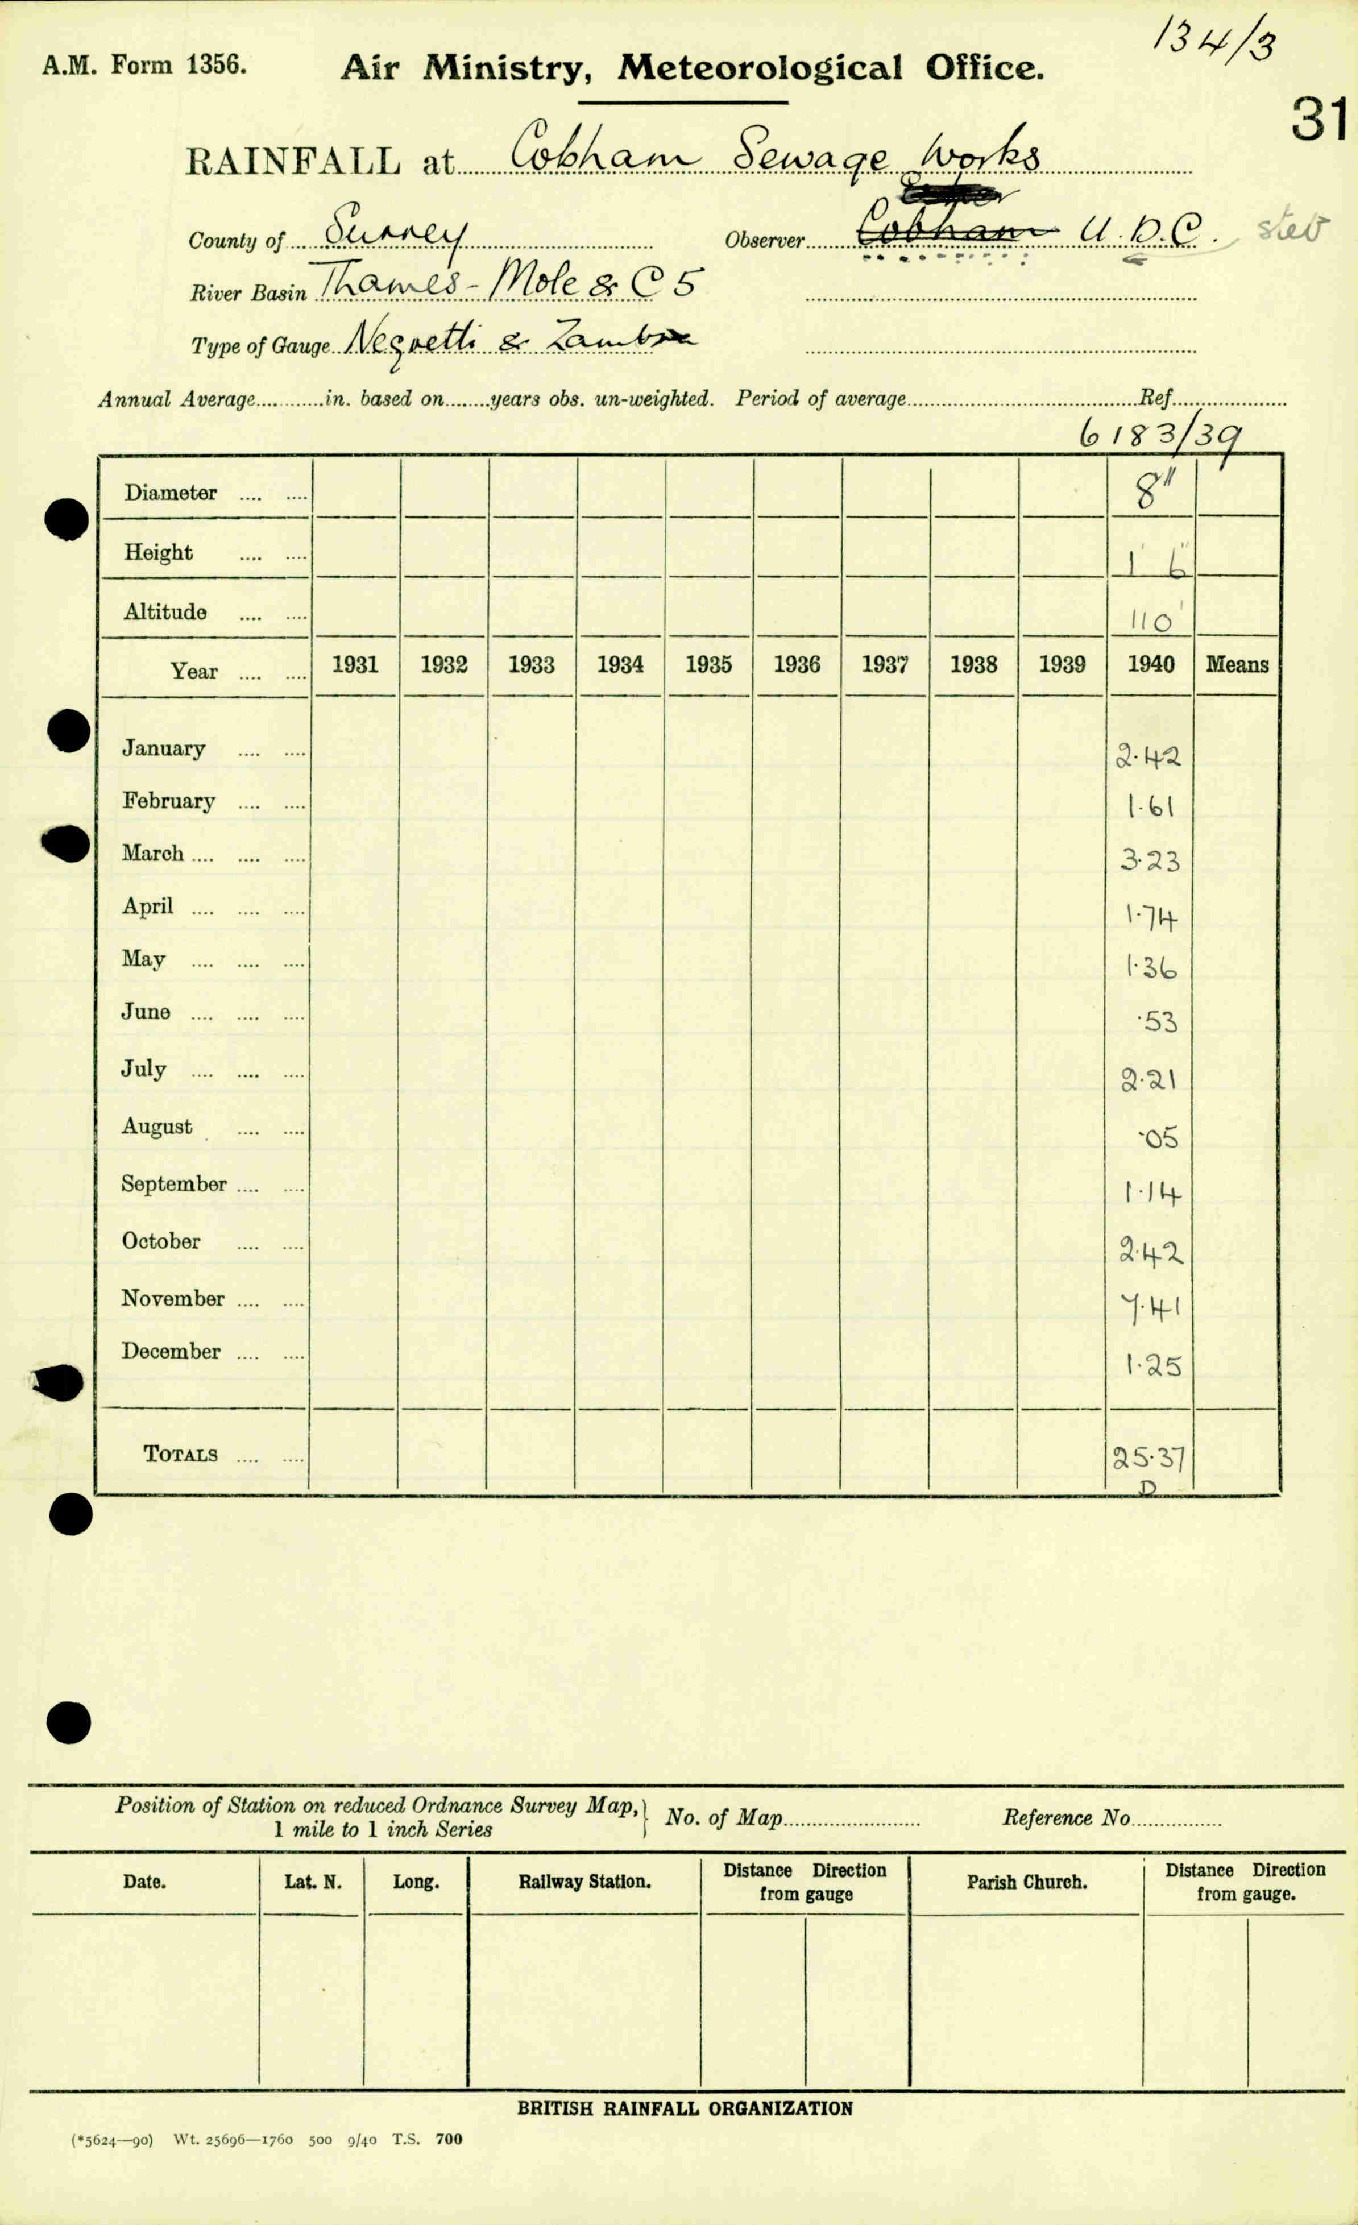 134/3
A.M. Form 1356. Air Ministry, Meteorological Office.
31
RAINFALL at Cobham Sewage Works
County of Surrey Observer Cobham U.D.C. stet
River Basin Thames - Mole & C 5
Type of Gauge Negretti & Zambra
Annual Average in. based on years obs. un-weighted. Period of average Ref
6183/39
Diameter .... .... 8"
Height .... .... 1' 6"
Altitude .... .... 110'
Year .... .... 1931 1932 1933 1934 1935 1936 1937 1938 1939 1940 Means
January .... .... 2.42
February .... .... 1.61
March .... .... .... 3.23
April .... .... .... 1.74
May .... .... .... 1.36
June .... .... .... .53
July .... .... .... 2.21
August .... .... .05
September .... .... 1.14
October .... .... 2.42
November .... .... 7.41
December .... .... 1.25
TOTALS .... .... 25.37
D
Position of Station on reduced Ordnance Survey Map, No. of Map Reference No
1 mile to 1 inch Series
Date. Lat. N. Long. Railway Station. Distance Direction from gauge Parish Church. Distance Direction from gauge.
BRITISH RAINFALL ORGANIZATION
(*5624—90) Wt. 25696—1760 500 9/40 T.S. 700